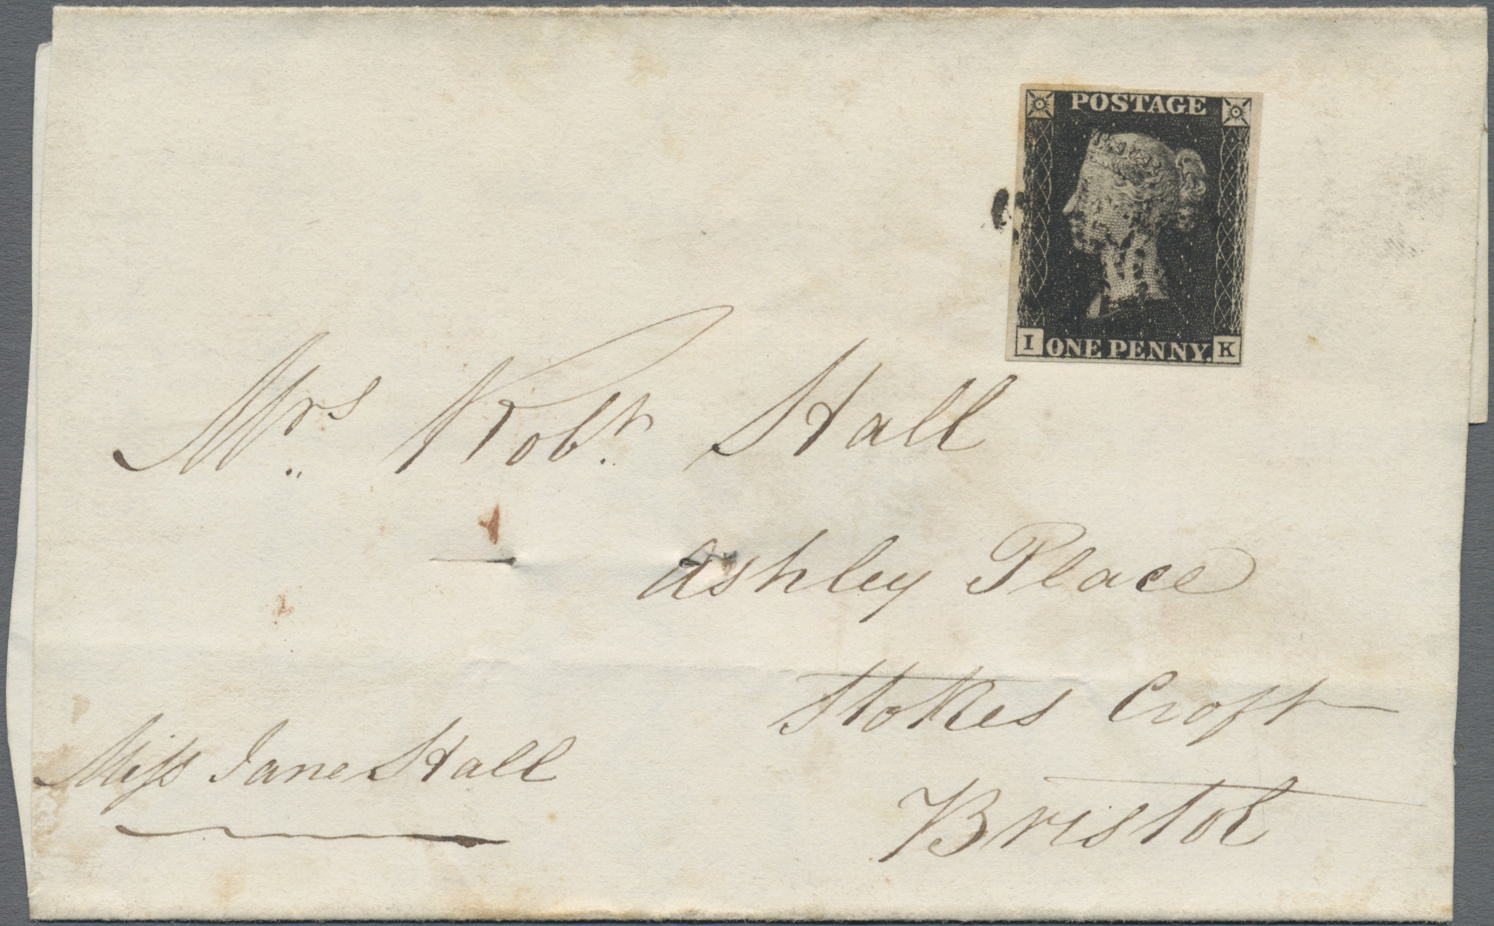 POSTAGE
I ONE PENNY. K
Mrs. Robt. Hall
Ashley Place
Stokes Croft
Bristol
Miss Jane Hall